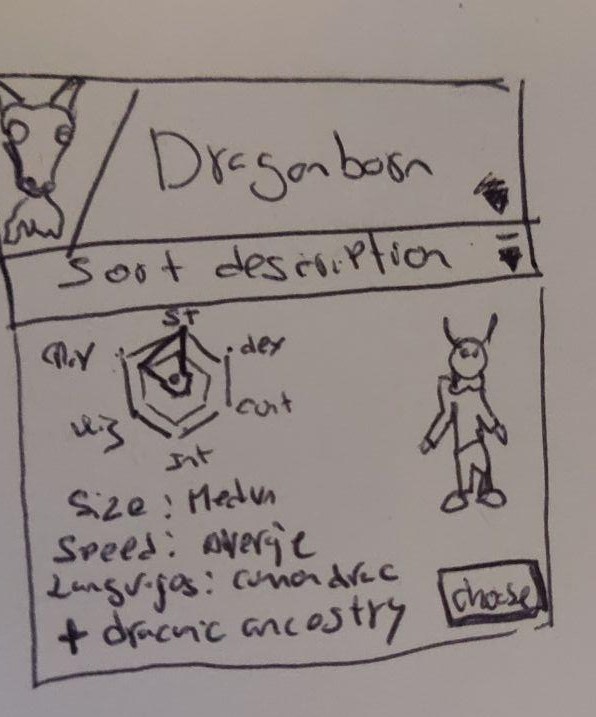 Dragonborn
Sort description
st
dex
cont
int
wiz
Size: Medun
Speed: Averge
Languges: comon drac
+ draconic ancestry
choose